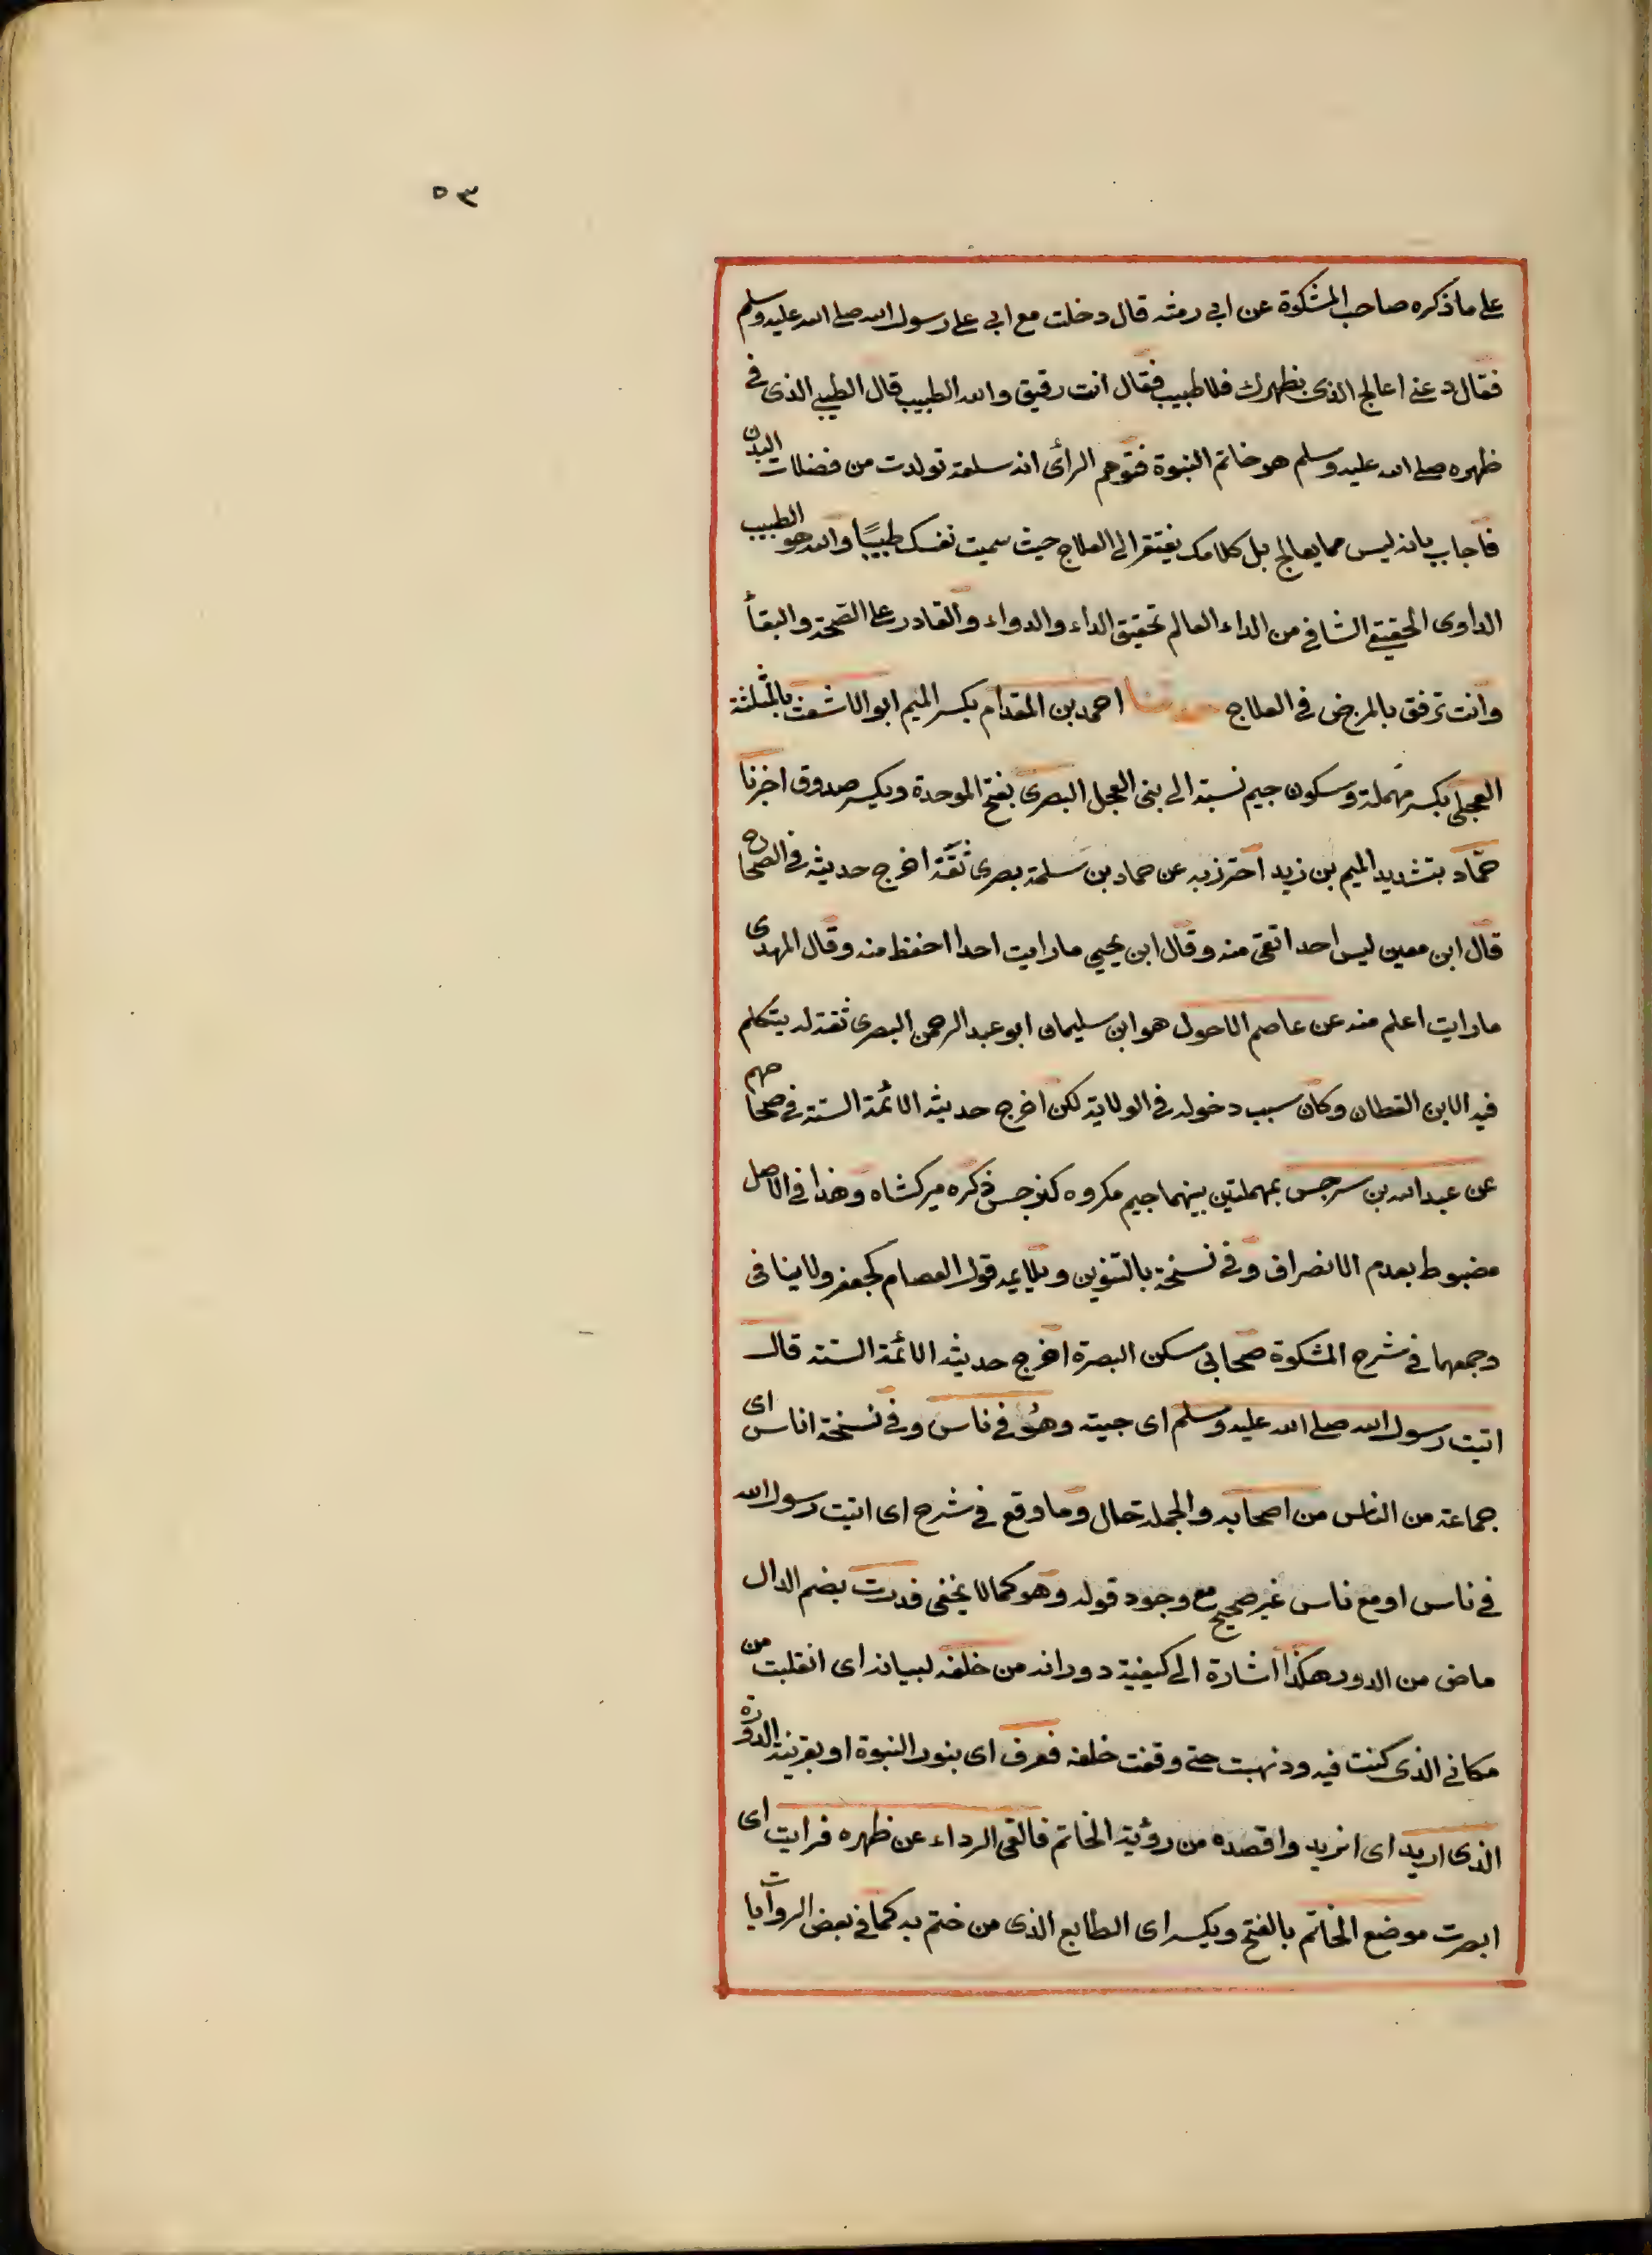 ٥٣
على ما ذكره صاحب المشكوة عن ابي رمثة قال دخلت مع ابي على رسول الله صلى الله عليه وسلم
فقال دعني اعالج الذى بظهرك فلا طبيب فقال انت رفيق والله الطبيب قال الطيبي الذى في
ظهره صلى الله عليه وسلم هو خاتم النبوة فتوهم الرأى انه سلعة تولدت من فضلات البدن
فاجاب بانه ليس مما يعالج بل كلامك يفتقر الى العلاج حيث سميت نفسك طبيبًا والله هو الطبيب
الداوى الحقيقي الشافي من الداء العالم تحقيق الداء والدواء والقادر على الصحة والبقأ
وانت ترفق بالمرض في العلاج حدثنا احمد بن المقدام بكسر الميم ابو الاشعث بالمثلثة
العجلي بكسر مهملة وسكون جيم نسبة الى بنى العجل البصرى بفتح الموحدة ويكسر صدوق اخبرنا
حمّاد بتشديد الميم بن زيد احترز به عن حماد بن سلمة بصرى ثقة اخرج حديثه في الصحاح
قال ابن معين ليس احد اتقى منه وقال ابن يحيى ما رايت احدا احفظ منه وقال المهدى
ما رايت اعلم منه عن عاصم الاحول هو ابن سليمان ابو عبد الرحمن البصرى ثقة لم يتكلم
فيه الا بن القطان وكان سبب دخوله في الولاية لكن اخرج حديثه الائمة الستة في صحاحهم
عن عبد الله بن سرجس بمهملتين بينهما جيم مكروه كنرجس ذكره ميركشاه وهذا في الاصل
مضبوط بعدم الانصراف وفي نسخة بالتنوين ويلايمه قول العصام كجعفر ولا ينافى
وجمعهما في شرح المشكوة صحابى سكن البصرة اخرج حديثه الائمة الستة قال
اتيت رسول الله صلى الله عليه وسلم اى جيته وهو في ناس وفي نسخة اناس اى
جماعة من الناس من اصحابه والجملة حال وما وقع في شرح اى اتيت رسول الله
في ناس او مع ناس غير صحيح مع وجود قوله وهو كما لا يخفى فدرت بضم الدال
ماض من الدور هكذا اشارة الى كيفية دورانه من خلفه لبيانه اى انقلبت من
مكانى الذى كنت فيه وذهبت حتى وقفت خلفه فعرف اى بنور النبوة او بقرينة الدورة
الذى اريد اى اريد واقصده من رؤية الخاتم فالقى الرداء عن ظهره فرايت اى
ابصرت موضع الخاتم بالفتح ويكسر اى الطابع الذى من ختم به كما في بعض الروايات